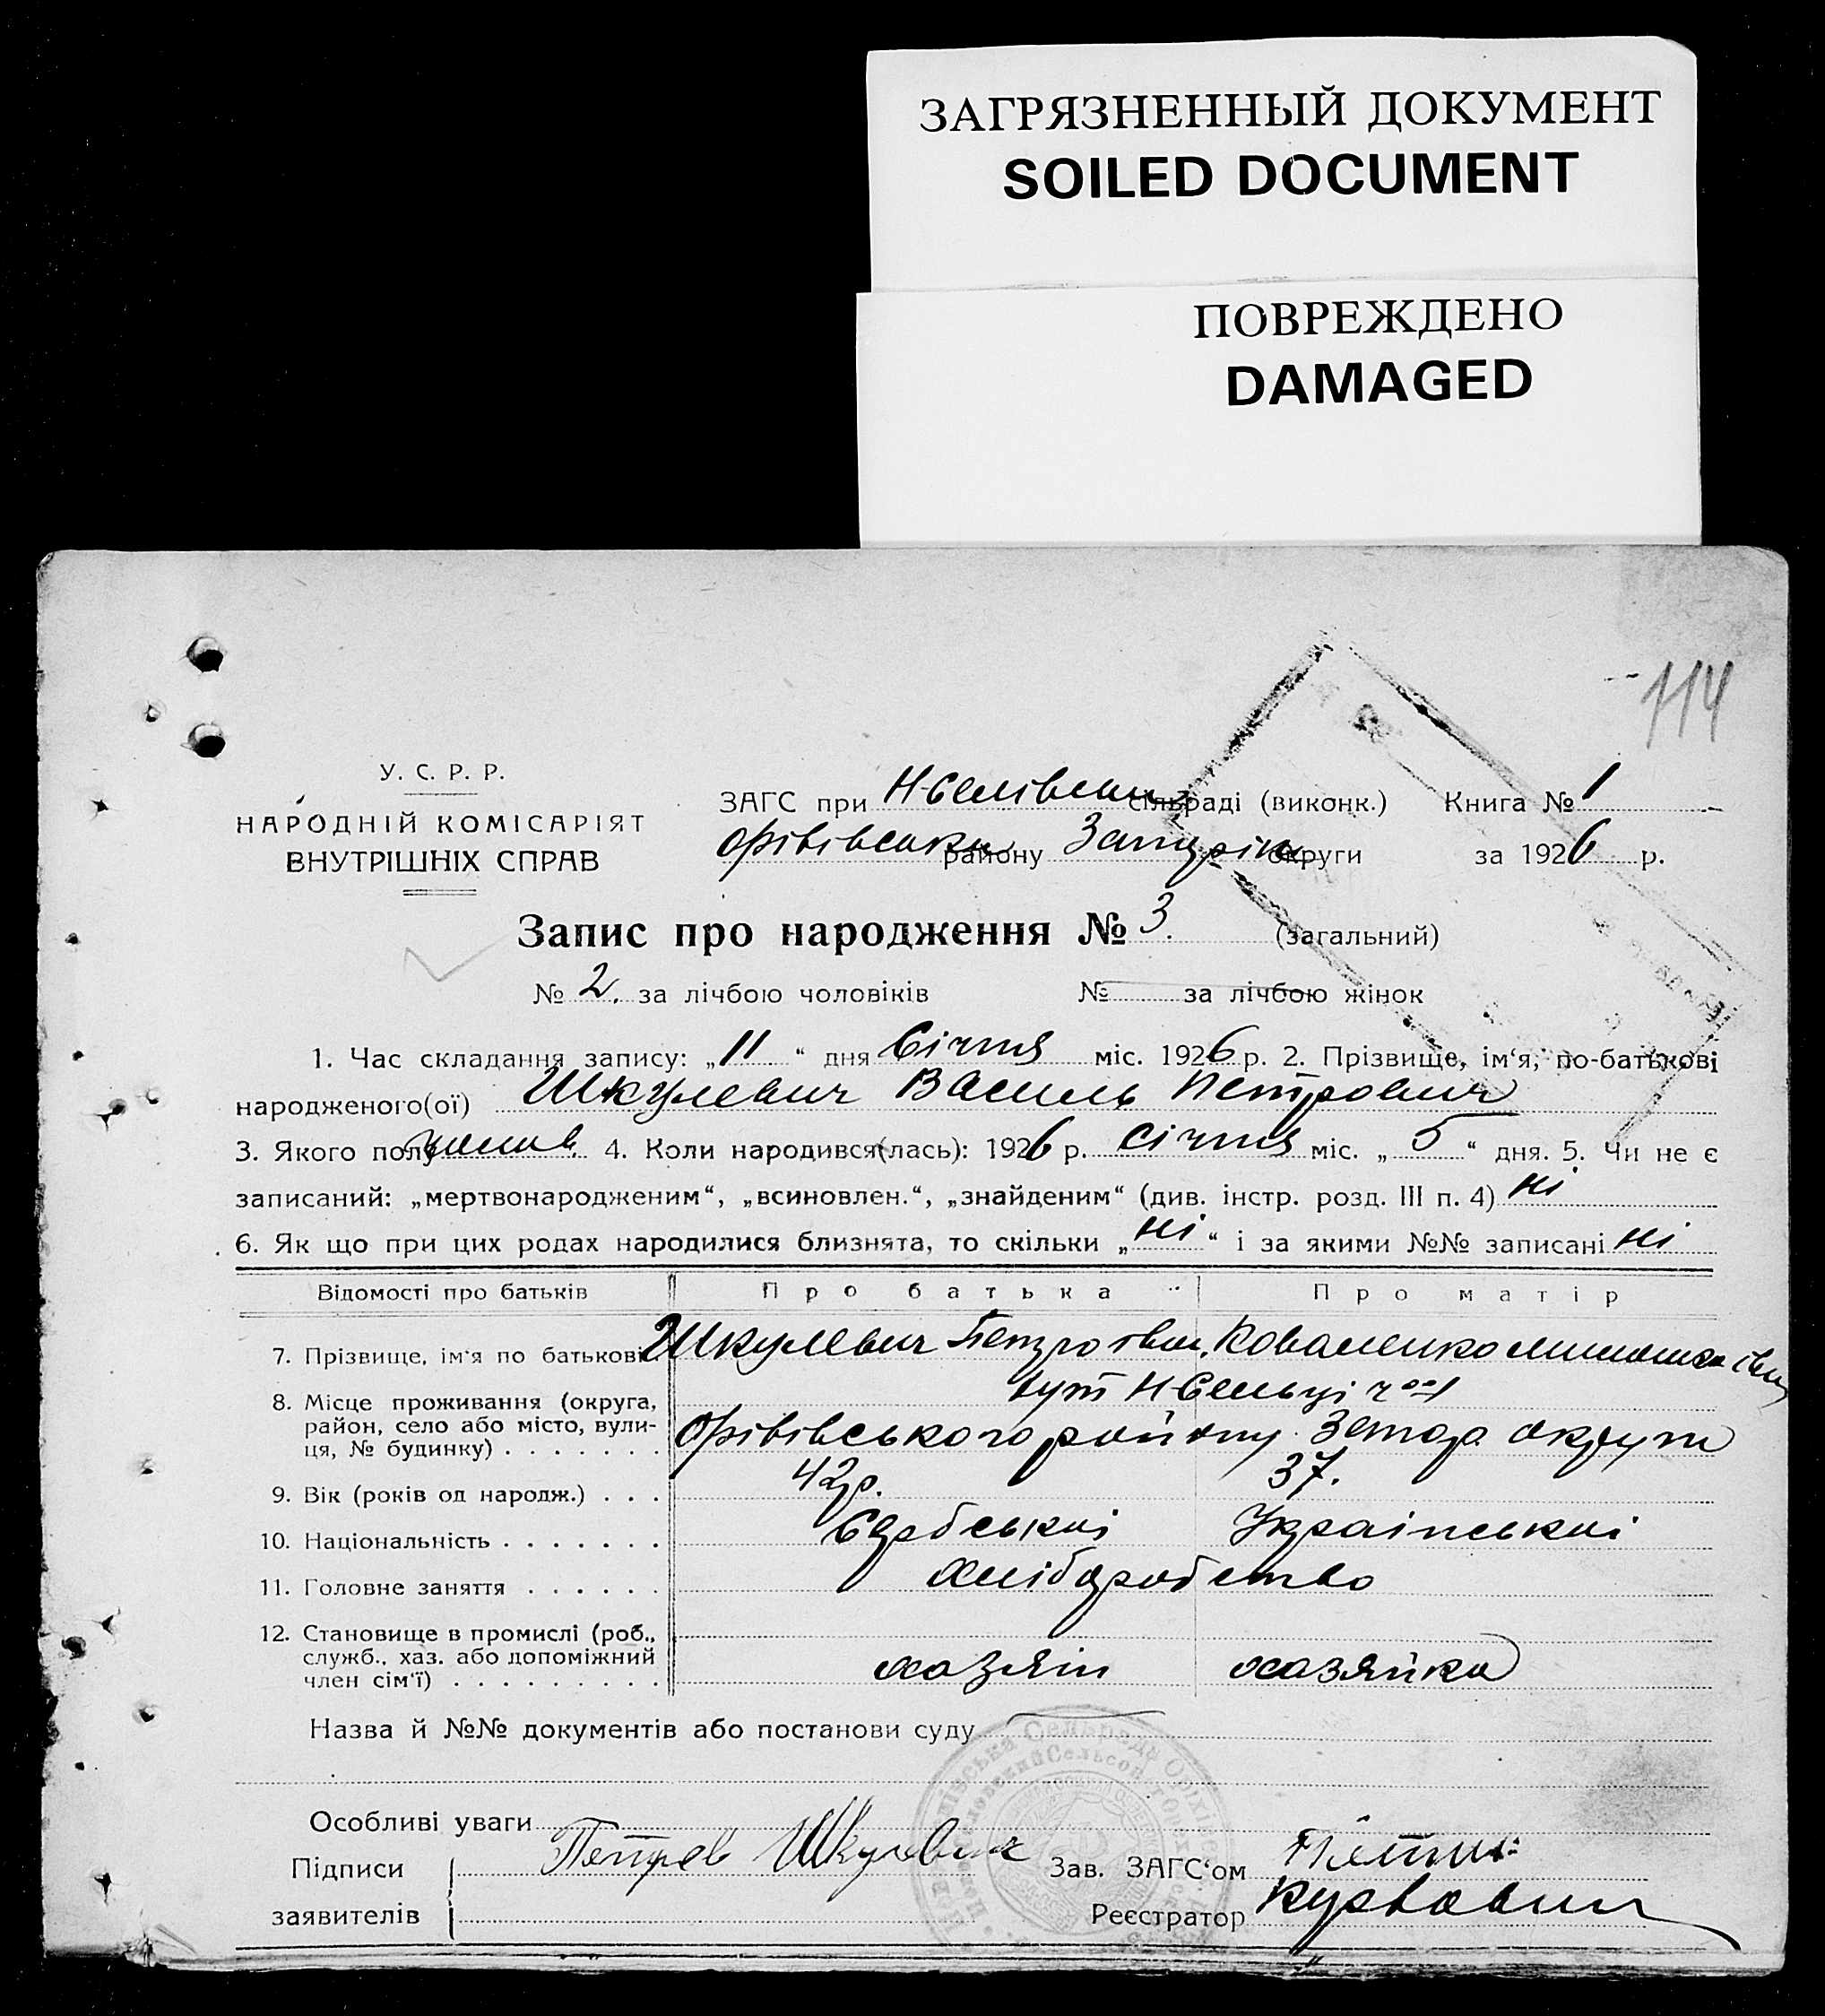 ЗАГРЯЗНЕННЫЙ ДОКУМЕНТ
SOILED DOCUMENT
ПОВРЕЖДЕНО
DAMAGED
114
У. С. Р. Р.
НАРОДНІЙ КОМІСАРІЯТ
ВНУТРІШНІХ СПРАВ
ЗАГС при сільраді (виконк.) Книга № 1
району округи за 1926 р.
Запис про народження № 3. (загальний)
№ 2. за лічбою чоловіків № за лічбою жінок
1. Час складання запису: „11“ дня Січня міс. 1926 р. 2. Прізвище, ім'я, по-батькові
народженого(ої) Шкулевич Василь Петрович
3. Якого полу 4. Коли народився(лась): 1926 р. січня міс. „5“ дня. 5. Чи не є
записаний: „мертвонародженим“, „всиновлен.“, „знайденим“ (див. інстр. розд. III п. 4) ні
6. Як що при цих родах народилися близнята, то скільки „ні“ і за якими №№ записані ні
Відомості про батьків Про батька Про матір
7. Прізвище, ім'я по батькові Шкулевич Петро Коваленко
8. Місце проживання (округа,
район, село або місто, вули-
ця, № будинку) Оріхівського району Запор округи
9. Вік (років од народж.) 42р. 37.
10. Національність Сербський Український
11. Головне заняття хліборобство
12. Становище в промислі (роб.,
служб., хаз. або допоміжний
член сім'ї) хазяїн хазяйка
Назва й №№ документів або постанови суду
Особливі уваги
Підписи Шкулевич Зав. ЗАГС'ом
заявителів Реєстратор